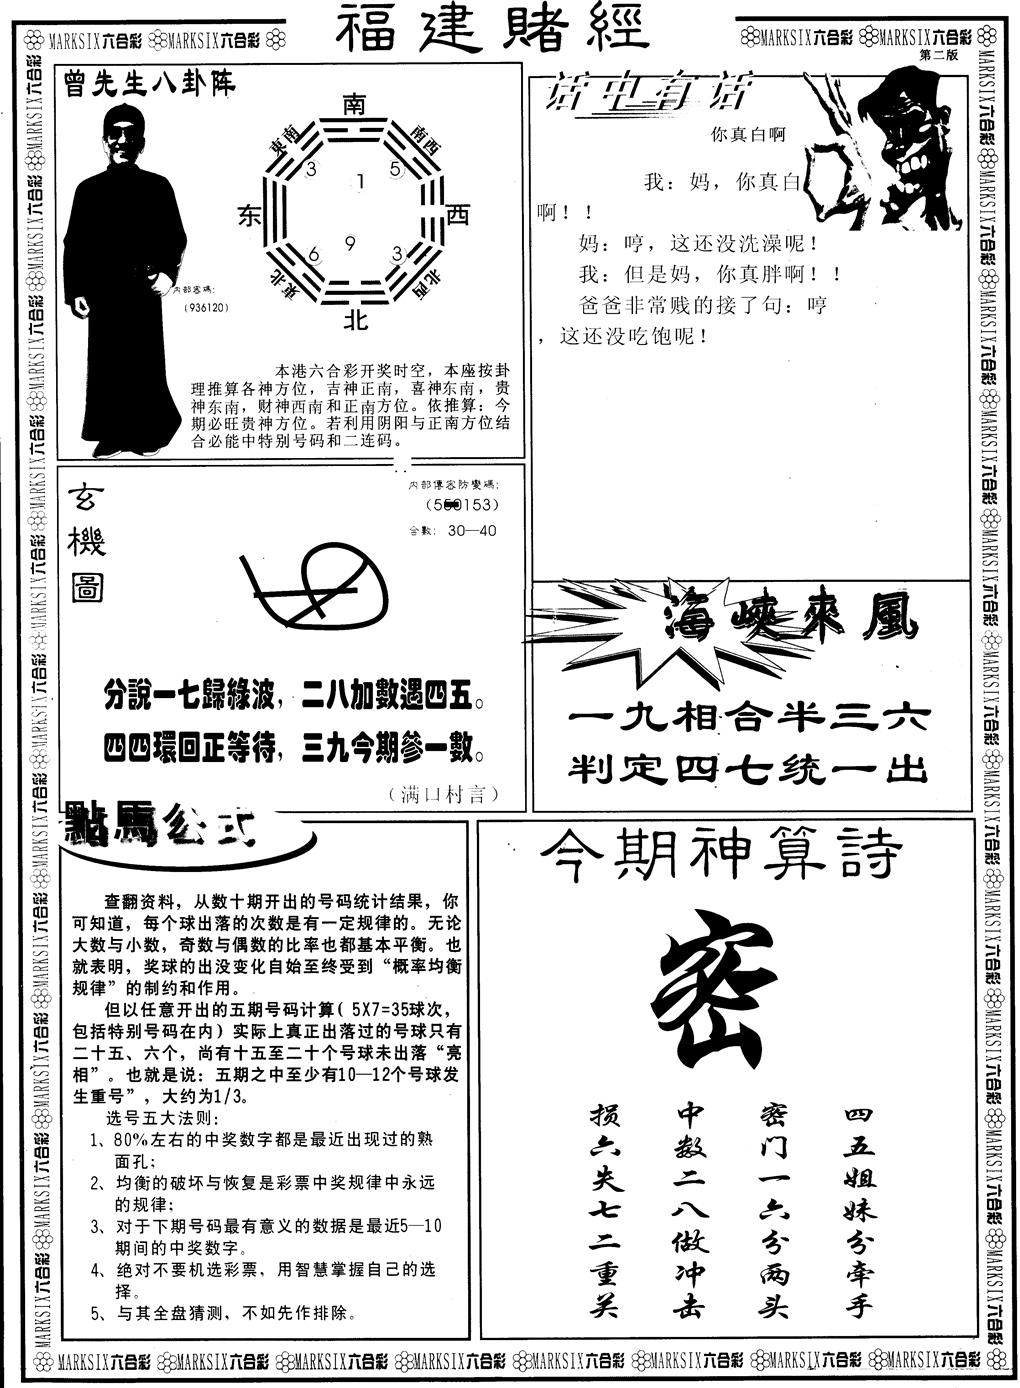 福建賭經
MARKSIX六合彩 MARKSIX六合彩
MARKSIX六合彩 MARKSIX六合彩
第二版
曾先生八卦阵
南
東南
南西
3
5
1
东
西
6
9
3
東北
北西
北
内部密碼:
(936120)
本港六合彩开奖时空，本座按卦
理推算各神方位，吉神正南，喜神东南，贵
神东南，财神西南和正南方位。依推算：今
期必旺贵神方位。若利用阴阳与正南方位结
合必能中特别号码和二连码。
话中有话
你真白啊
我：妈，你真白
啊！！
妈：哼，这还没洗澡呢！
我：但是妈，你真胖啊！！
爸爸非常贱的接了句：哼
，这还没吃饱呢！
玄機圖
内部傳密防變碼:
合數: 30—40
分說一七歸綠波，二八加數遇四五。
四四環回正等待，三九今期參一數。
（满口村言）
海峽來風
一九相合半三六
判定四七统一出
點馬公式
查翻资料，从数十期开出的号码统计结果，你
可知道，每个球出落的次数是有一定规律的。无论
大数与小数，奇数与偶数的比率也都基本平衡。也
就表明，奖球的出没变化自始至终受到“概率均衡
规律”的制约和作用。
但以任意开出的五期号码计算( 5X7=35球次，
包括特别号码在内）实际上真正出落过的号球只有
二十五、六个，尚有十五至二十个号球未出落“亮
相”。也就是说：五期之中至少有10—12个号球发
生重号”，大约为1/3。
选号五大法则：
1、80%左右的中奖数字都是最近出现过的熟
面孔；
2、均衡的破坏与恢复是彩票中奖规律中永远
的规律；
3、对于下期号码最有意义的数据是最近5—10
期间的中奖数字。
4、绝对不要机选彩票，用智慧掌握自己的选
择。
5、与其全盘猜测，不如先作排除。
今期神算詩
密
四五姐妹分牵手
密门一六分两头
中数二八做冲击
损六失七二重关
MARKSIX六合彩 MARKSIX六合彩 MARKSIX六合彩 MARKSIX六合彩 MARKSIX六合彩 MARKSIX六合彩 MARKSIX六合彩 MARKSIX六合彩